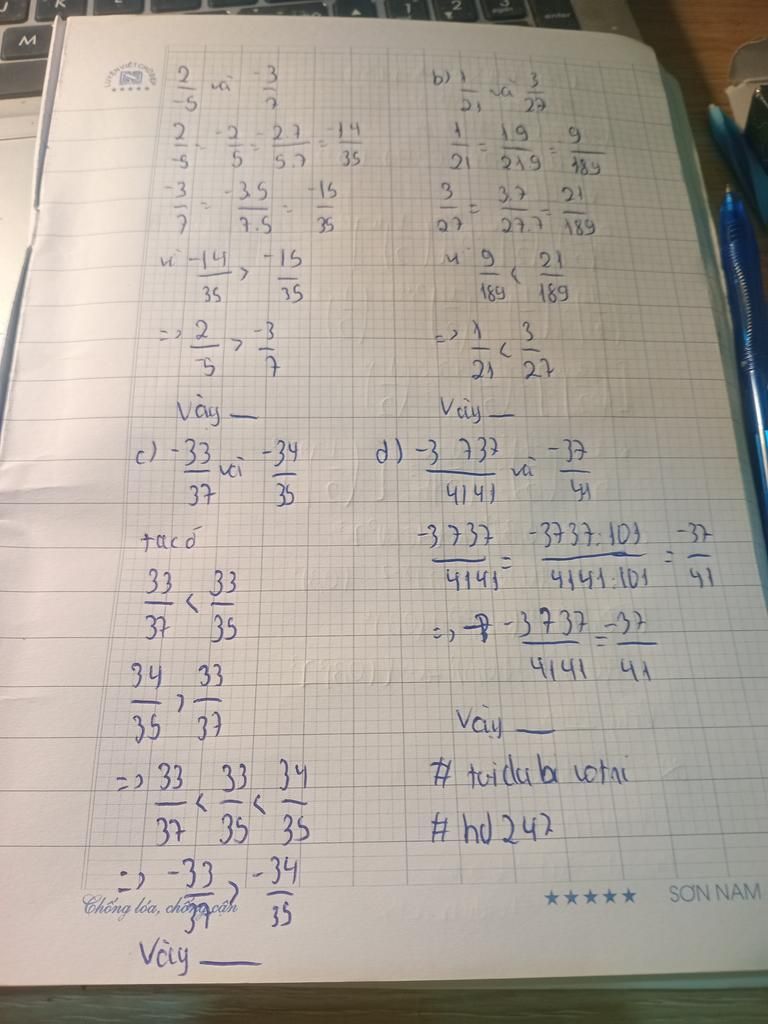 2/-5 và -3/7
2/-5 = -2/5 = -2.7/5.7 = -14/35
-3/7 = -3.5/7.5 = -15/35
vì -14/35 > -15/35
=> 2/-5 > -3/7
Vậy —
b) 1/21 và 3/27
1/21 = 1.9/21.9 = 9/189
3/27 = 3.7/27.7 = 21/189
vì 9/189 < 21/189
=> 1/21 < 3/27
Vậy —
c) -33/37 và -34/35
ta có
33/37 < 33/35
34/35 > 33/37
=> 33/37 < 33/35 < 34/35
=> -33/37 > -34/35
Vậy —
d) -3737/4141 và -37/41
-3737/4141 = -3737:101/4141:101 = -37/41
=> -3737/4141 = -37/41
Vậy —
#
# hd 247
Chống lóa, chống cận
★★★★★ SƠN NAM
M
K
enter